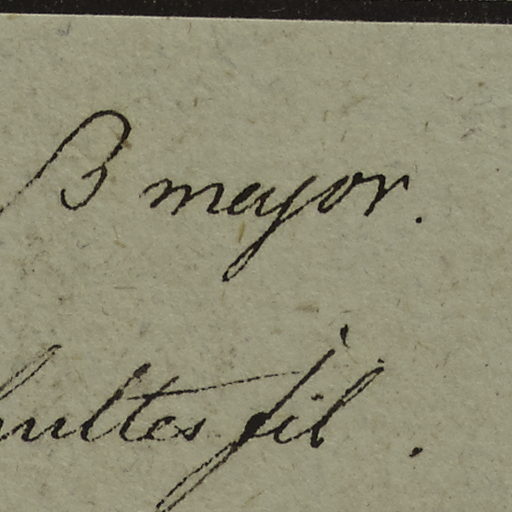 β mayor.
hultes fil.